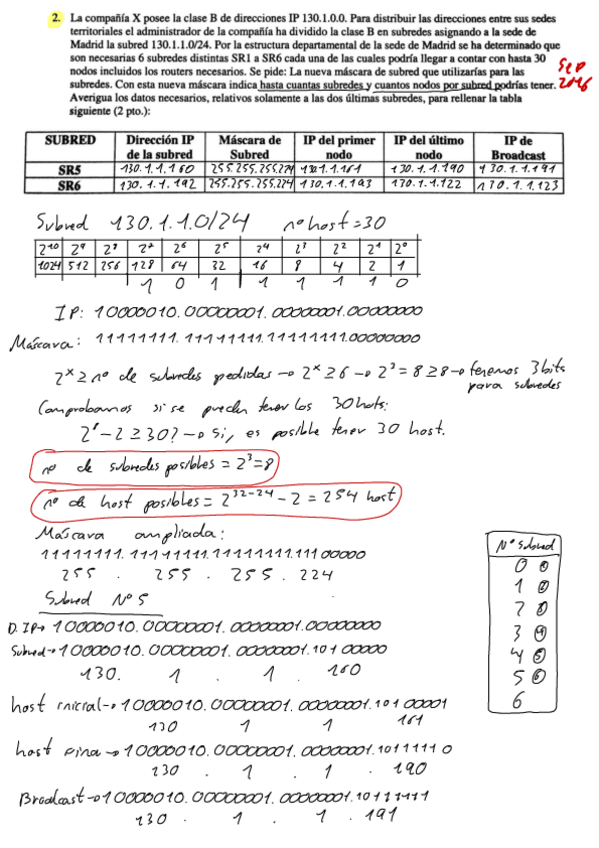 2. La compañía X posee la clase B de direcciones IP 130.1.0.0. Para distribuir las direcciones entre sus sedes
territoriales el administrador de la compañía ha dividido la clase B en subredes asignando a la sede de
Madrid la subred 130.1.1.0/24. Por la estructura departamental de la sede de Madrid se ha determinado que
son necesarias 6 subredes distintas SR1 a SR6 cada una de las cuales podría llegar a contar con hasta 30
nodos incluidos los routers necesarios. Se pide: La nueva máscara de subred que utilizarías para las
subredes. Con esta nueva máscara indica hasta cuantas subredes y cuantos nodos por subred podrías tener.
Averigua los datos necesarios, relativos solamente a las dos últimas subredes, para rellenar la tabla
siguiente (2 pto.):
SEP
2016
SUBRED Dirección IP de la subred Máscara de Subred IP del primer nodo IP del último nodo IP de Broadcast
SR5 130.1.1.160 255.255.255.224 130.1.1.161 130.1.1.190 130.1.1.191
SR6 130.1.1.192 255.255.255.224 130.1.1.193 170.1.1.122 170.1.1.123
Subred 130.1.1.0/24 nº host = 30
2¹⁰ 2⁹ 2⁸ 2⁷ 2⁶ 2⁵ 2⁴ 2³ 2² 2¹ 2⁰
1024 512 256 128 64 32 16 8 4 2 1
1 0 1 1 1 1 1 0
IP: 10000010.00000001.00000001.00000000
Máscara: 11111111.11111111.11111111.00000000
2ˣ ≥ nº de subredes pedidas → 2ˣ ≥ 6 → 2³ = 8 ≥ 8 → tenemos 3 bits
para subredes
Comprobamos si se pueden tener los 30 hots:
- 2 ≥ 30? → Si, es posible tener 30 host.
nº de subredes posibles = 2³ = 8
nº de host posibles = 2³²⁻²⁴ - 2 = 254 host
Máscara ampliada:
11111111.11111111.11111111.11100000
255 . 255 . 255 . 224
Nº Subred
0 ①
1 ②
2 ③
3 ④
4 ⑤
5 ⑥
6
Subred Nº 5
D. IP → 10000010.00000001.00000001.00000000
Subred → 10000010.00000001.00000001.10100000
130. 1 . 1 . 160
host inicial → 10000010.00000001.00000001.10100001
130 1 1 161
host fina → 10000010.00000001.00000001.10111110
130 . 1 . 1 . 190
Broadcast → 10000010.00000001.00000001.10111111
130 . 1 . 1 . 191